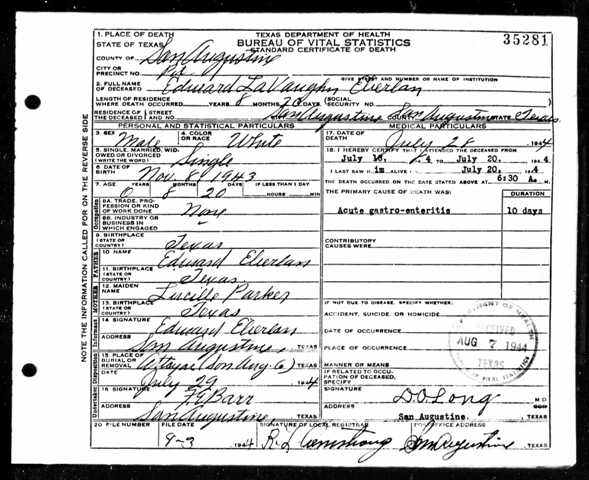 1. PLACE OF DEATH
STATE OF TEXAS
TEXAS DEPARTMENT OF HEALTH
BUREAU OF VITAL STATISTICS
STANDARD CERTIFICATE OF DEATH
35281
COUNTY OF San Augustine
CITY OR PRECINCT NO.
GIVE STREET AND NUMBER OR NAME OF INSTITUTION
2. FULL NAME OF DECEASED Edward LaVaughn
LENGTH OF RESIDENCE WHERE DEATH OCCURRED YEARS 8 MONTHS 20 DAYS (SOCIAL SECURITY NO.
RESIDENCE OF THE DECEASED STREET AND NO. San Augustine San Augustine STATE Texas
PERSONAL AND STATISTICAL PARTICULARS
MEDICAL PARTICULARS
3. SEX Male
4. COLOR OR RACE White
17. DATE OF DEATH July 28 1944
5. SINGLE, MARRIED, WIDOWED OR DIVORCED (WRITE THE WORD) Single
18. I HEREBY CERTIFY THAT I ATTENDED THE DECEASED FROM
July 18, 44 TO July 20. 1944
6. DATE OF BIRTH Nov. 8 1943
I LAST SAW H im ALIVE July 20. 1944
THE DEATH OCCURRED ON THE DATE STATED ABOVE AT 6:30 A. M.
7. AGE 0 YEARS 8 MONTHS 20 DAYS IF LESS THAN 1 DAY HOURS MIN
THE PRIMARY CAUSE OF DEATH WAS:
DURATION
8A. TRADE, PROFESSION OR KIND OF WORK DONE None
Acute gastro-enteritis 10 days
8B. INDUSTRY OR BUSINESS IN WHICH ENGAGED
CONTRIBUTORY CAUSES WERE:
9. BIRTHPLACE (STATE OR COUNTRY) Texas
10 NAME Edward
11. BIRTHPLACE (STATE OR COUNTRY) Texas
12. MAIDEN NAME Lucille Parker
13. BIRTHPLACE (STATE OR COUNTRY) Texas
IF NOT DUE TO DISEASE, SPECIFY WHETHER:
ACCIDENT, SUICIDE, OR HOMICIDE
14 SIGNATURE Edward
DATE OF OCCURRENCE
ADDRESS San Augustine, TEXAS
PLACE OF OCCURRENCE
AUG 7 1944
TEXAS
15 PLACE OF BURIAL OR REMOVAL TEXAS
MANNER OR MEANS
DATE July 29 1944
IF RELATED TO OCCUPATION OF DECEASED, SPECIFY
16 SIGNATURE Barr
SIGNATURE D.O. Long M D
ADDRESS San Augustine TEXAS
San Augustine. TEXAS
20 FILE NUMBER
FILE DATE 9-3 1944
SIGNATURE OF LOCAL REGISTRAR R L Armstrong
POST OFFICE ADDRESS San Augustine, TEXAS
NOTE THE INFORMATION CALLED FOR ON THE REVERSE SIDE
Occupation
FATHER
MOTHER
Informant